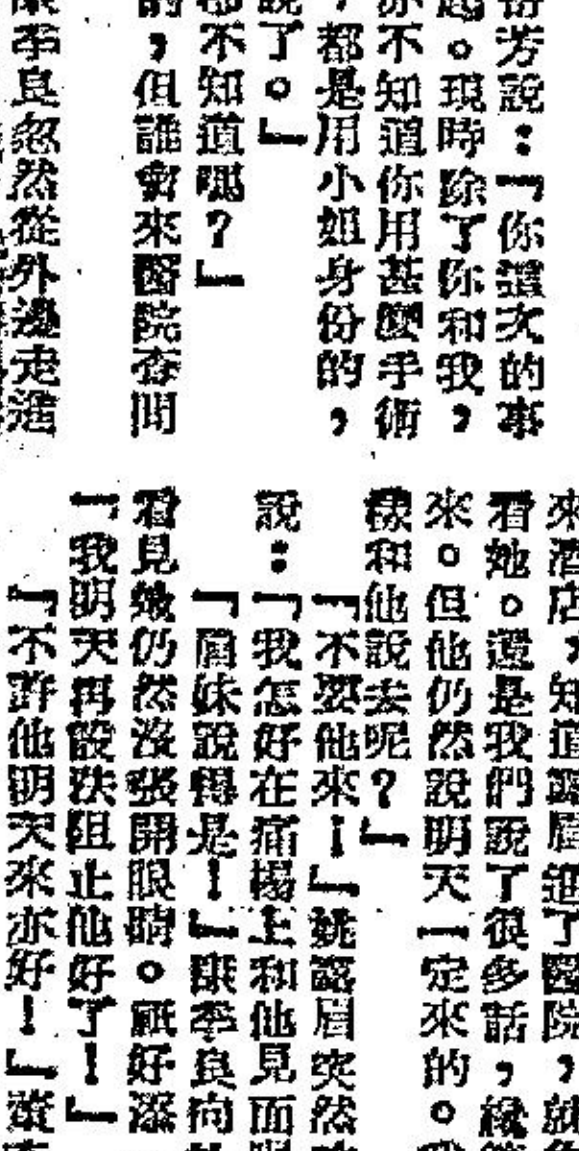 芳說：「你這次的事
。現時除了你和我，
亦不知道你用甚麼手術
，都是用小姐身份的，
說了。」
都不知道嗎？」
的，但誰會來醫院查問
李良忽然從外邊走進
來酒店，知道露眉進了醫院，就
看她。還是我們說了很多話，纔
來。但他仍然說明天一定來的。我
樣和他說去呢？」
「不要他來！」姚露眉突然
說：「我怎好在病榻上和他見面
「眉妹說得是！」陳李良向
看見她仍然沒張開眼睛。祇好添
「我明天再設法阻止他好了！」
「不許他明天來亦好！」